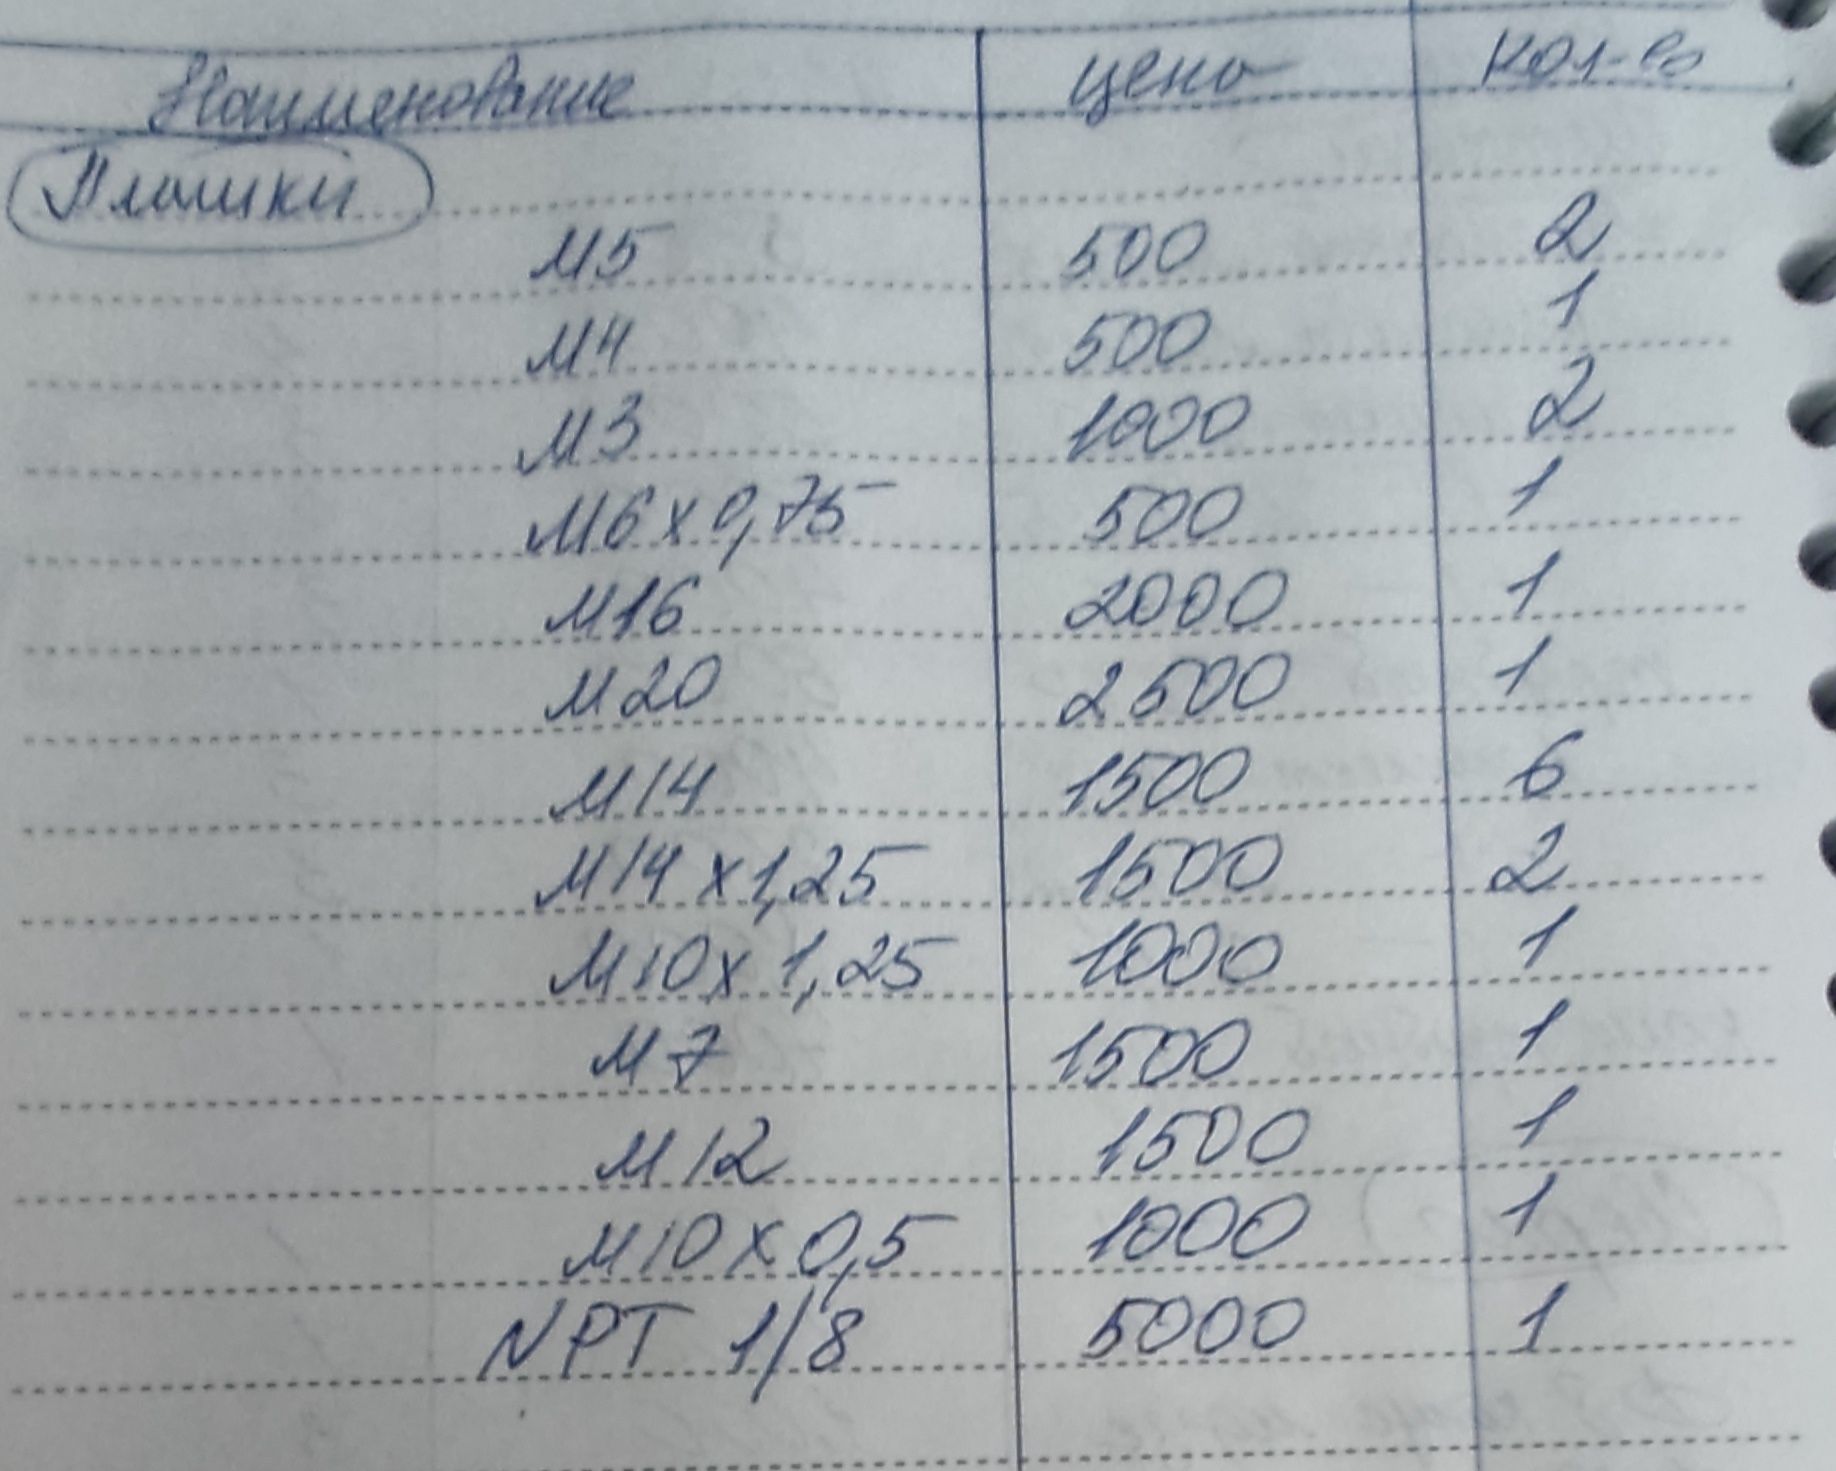 Наименование цена кол-во
Плашки
М5 500 2
М4 500 1
М3 1000 2
М6 х 0,75 500 1
М16 2000 1
М20 2500 1
М14 1500 6
М14 х 1,25 1500 2
М10 х 1,25 1000 1
М7 1500 1
М12 1500 1
М10 х 0,5 1000 1
NPT 1/8 5000 1